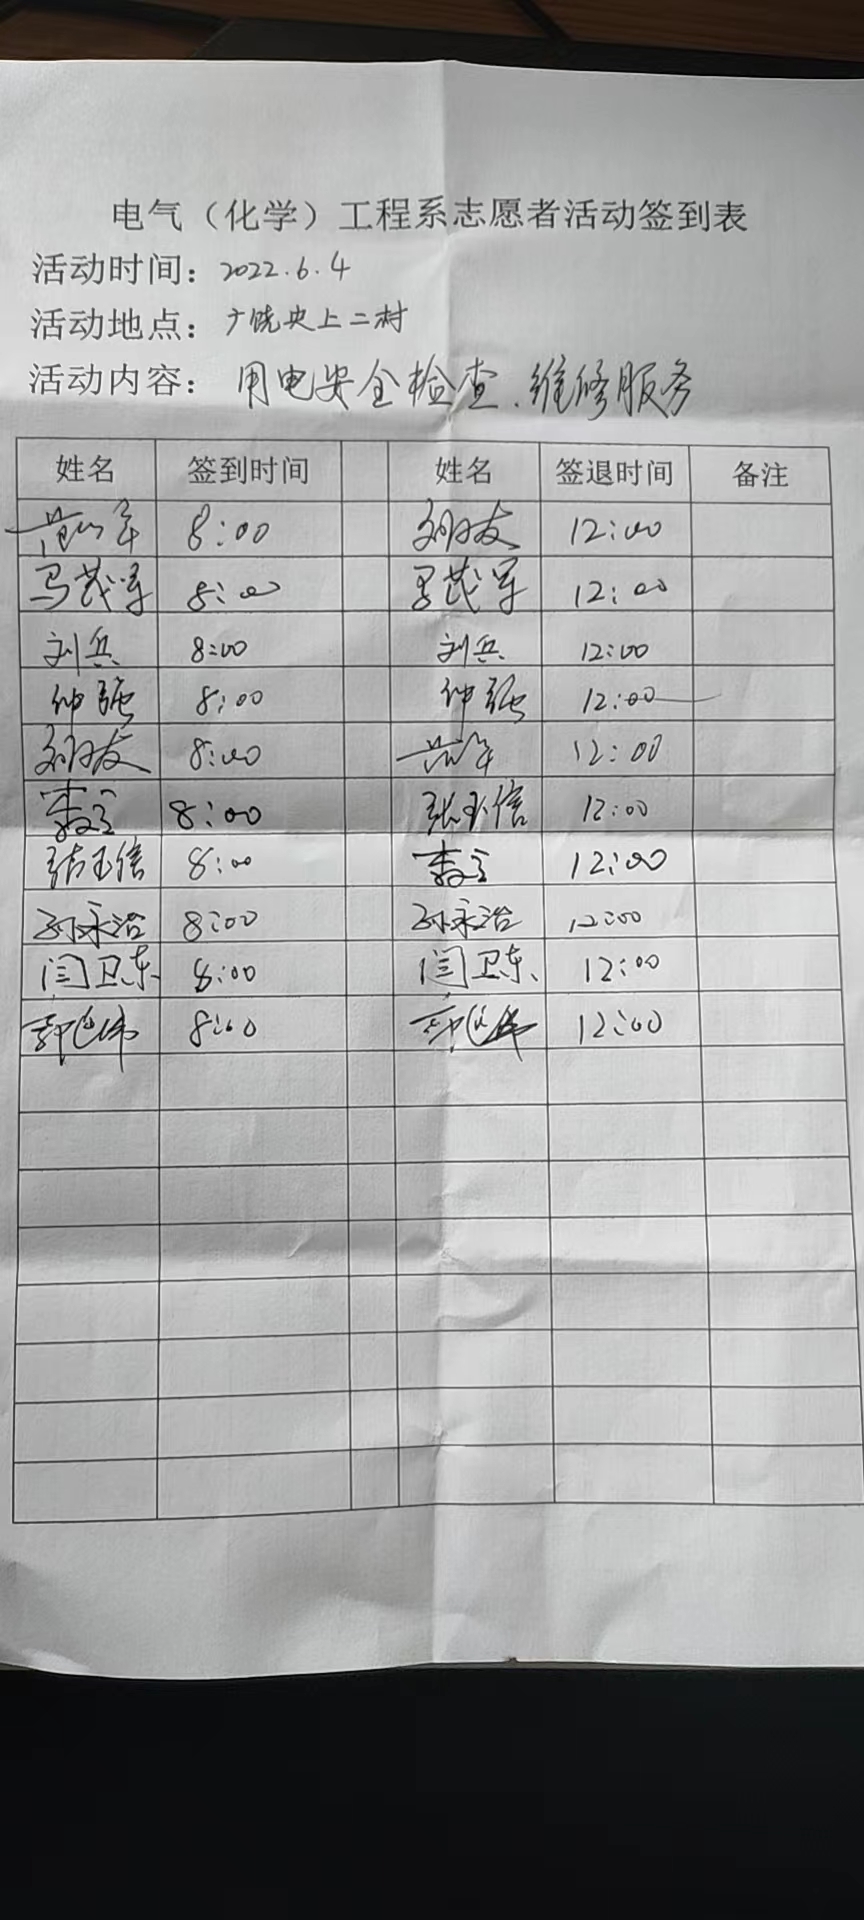 电气（化学）工程系志愿者活动签到表
活动时间：2022.6.4
活动地点：广饶央上二村
活动内容：用电安全检查、维修服务
姓名 签到时间 姓名 签退时间 备注
8:00 12:00
马茂军 8:00 马茂军 12:00
刘兵 8:00 刘兵 12:00
仲强 8:00 仲强 12:00
8:00 12:00
8:00 张玉信 12:00
张玉信 8:00 12:00
孙永浩 8:00 孙永浩 12:00
闫卫东 8:00 闫卫东 12:00
8:00 12:00